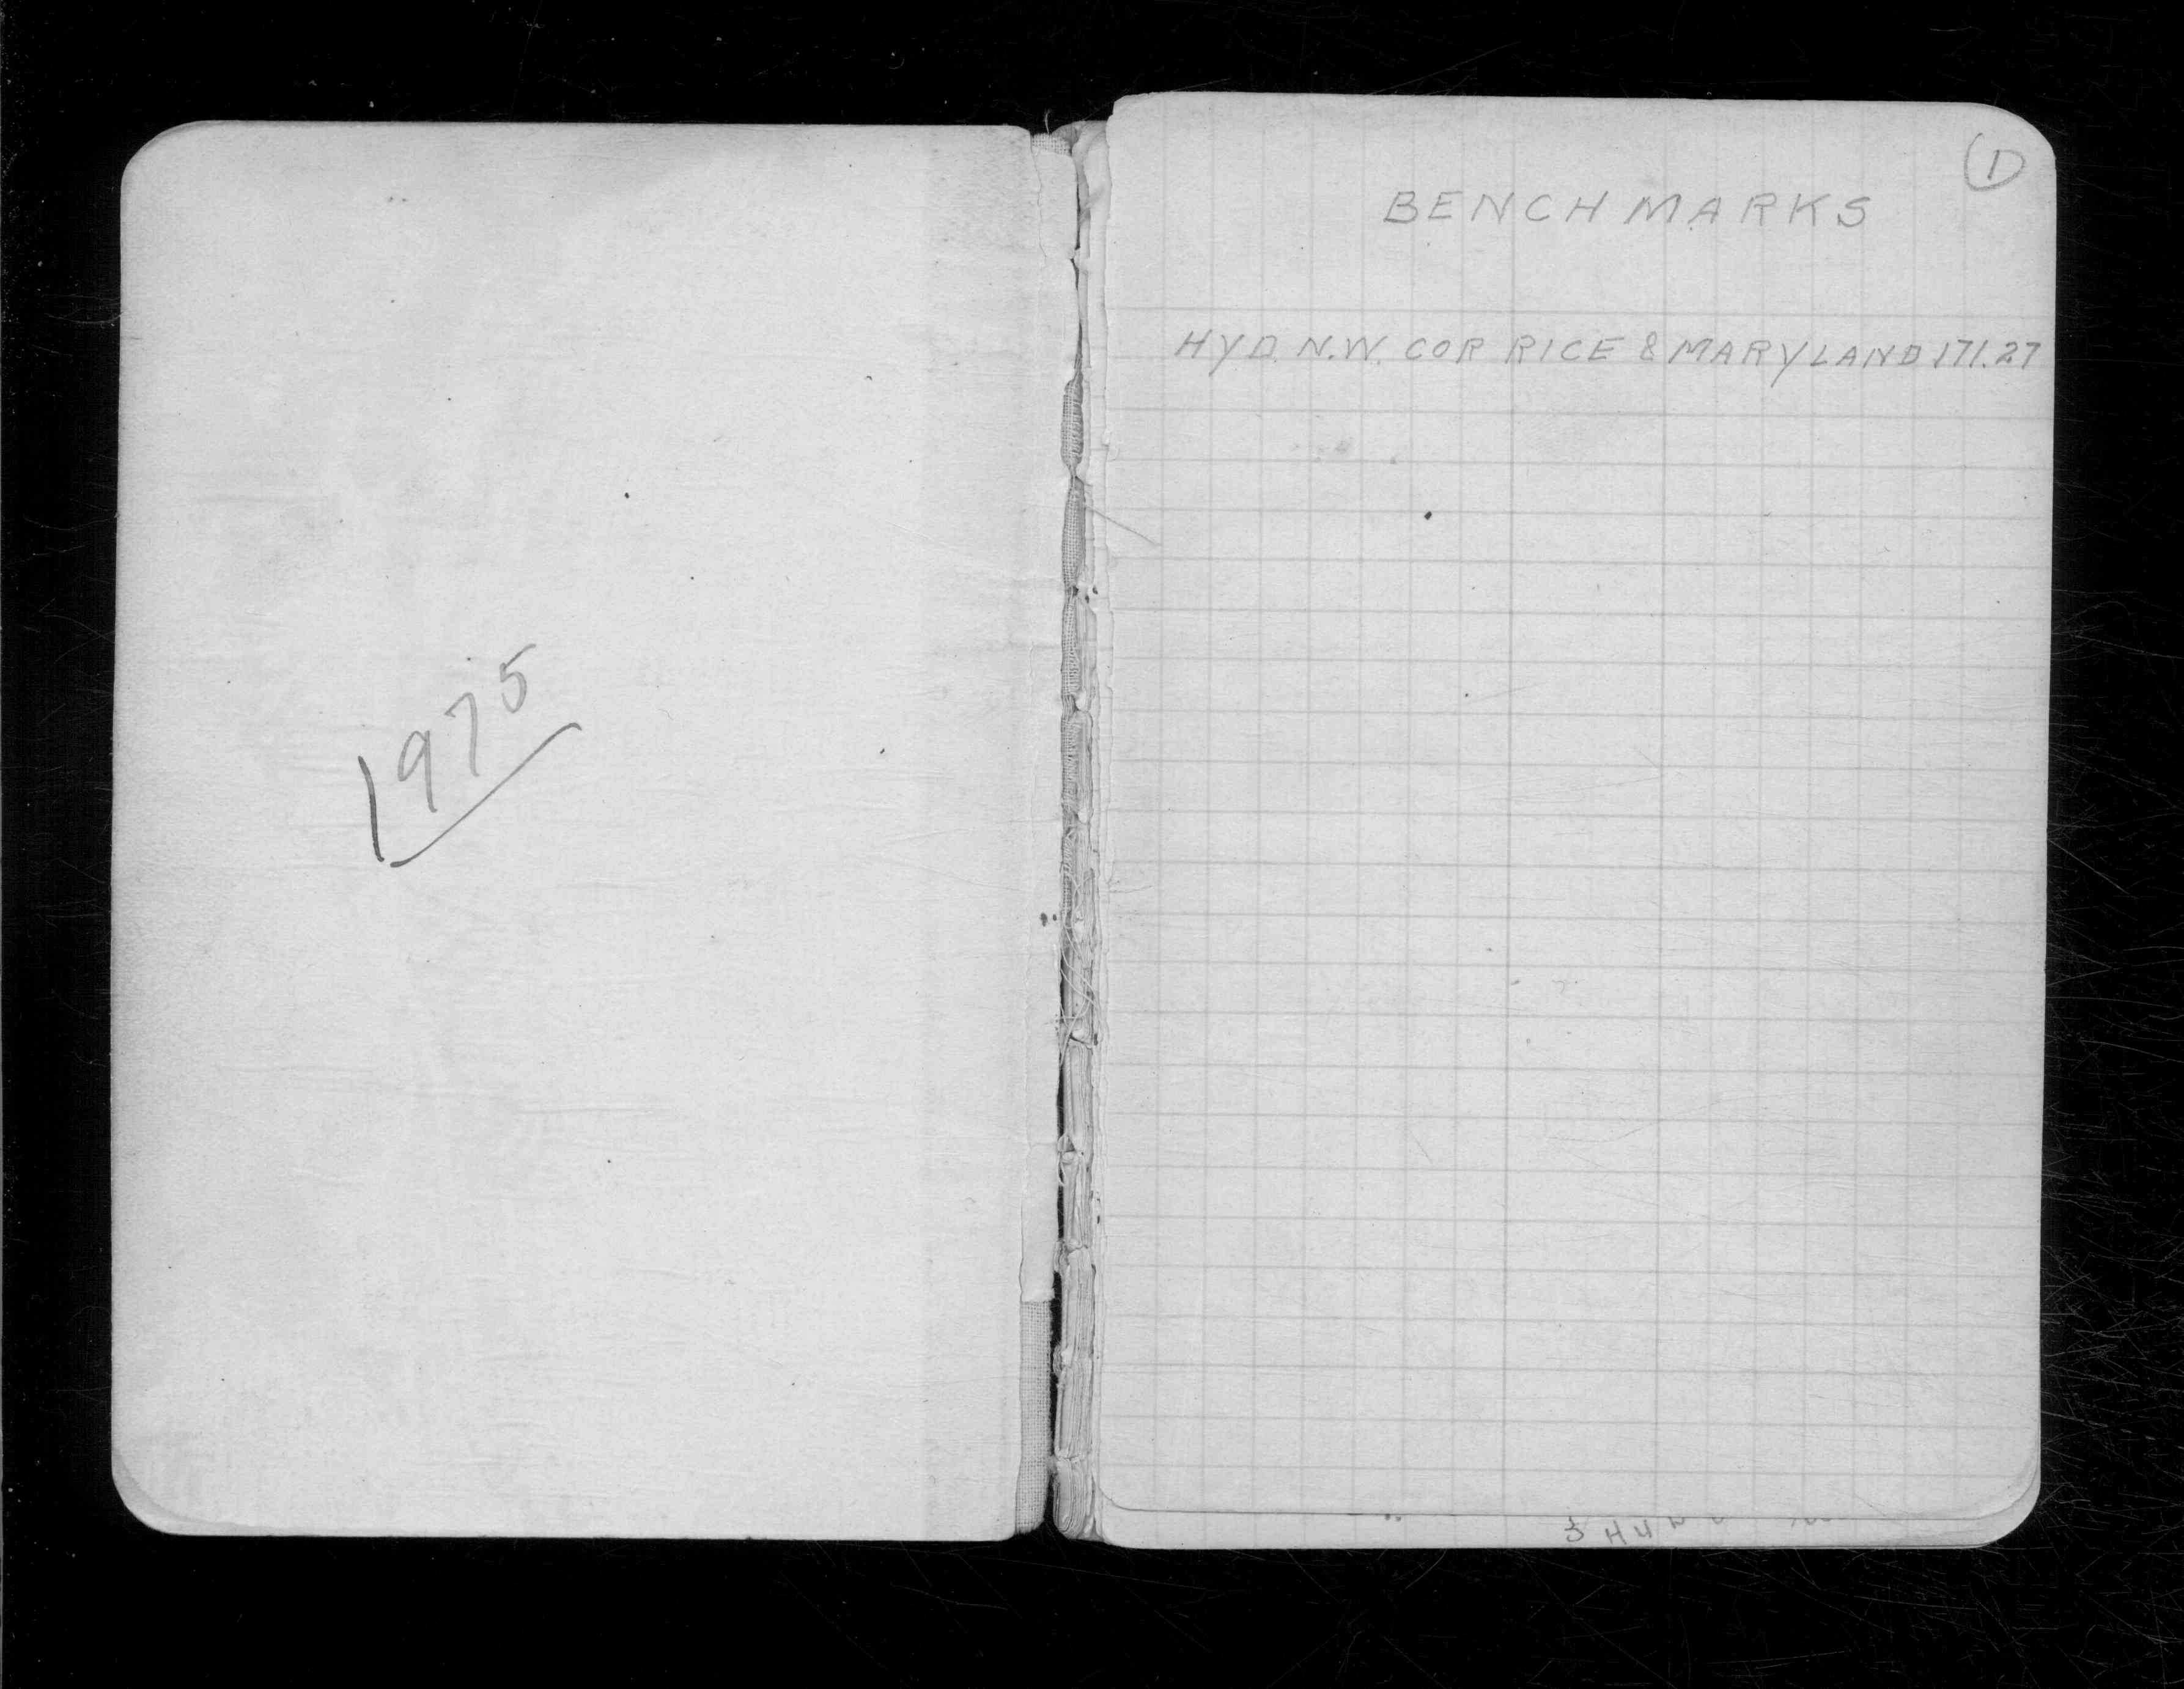 1975
1
BENCH MARKS
HYD. N.W. COR RICE & MARYLAND 171.27